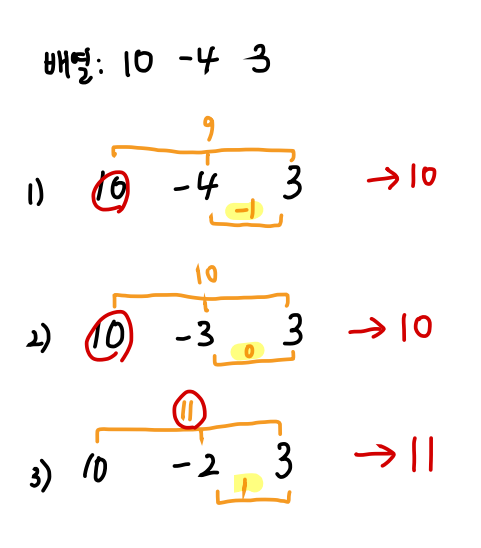 배열: 10 -4 3
9
1) 10 -4 3 → 10
-1
10
2) 10 -3 3 → 10
0
11
3) 10 -2 3 → 11
1